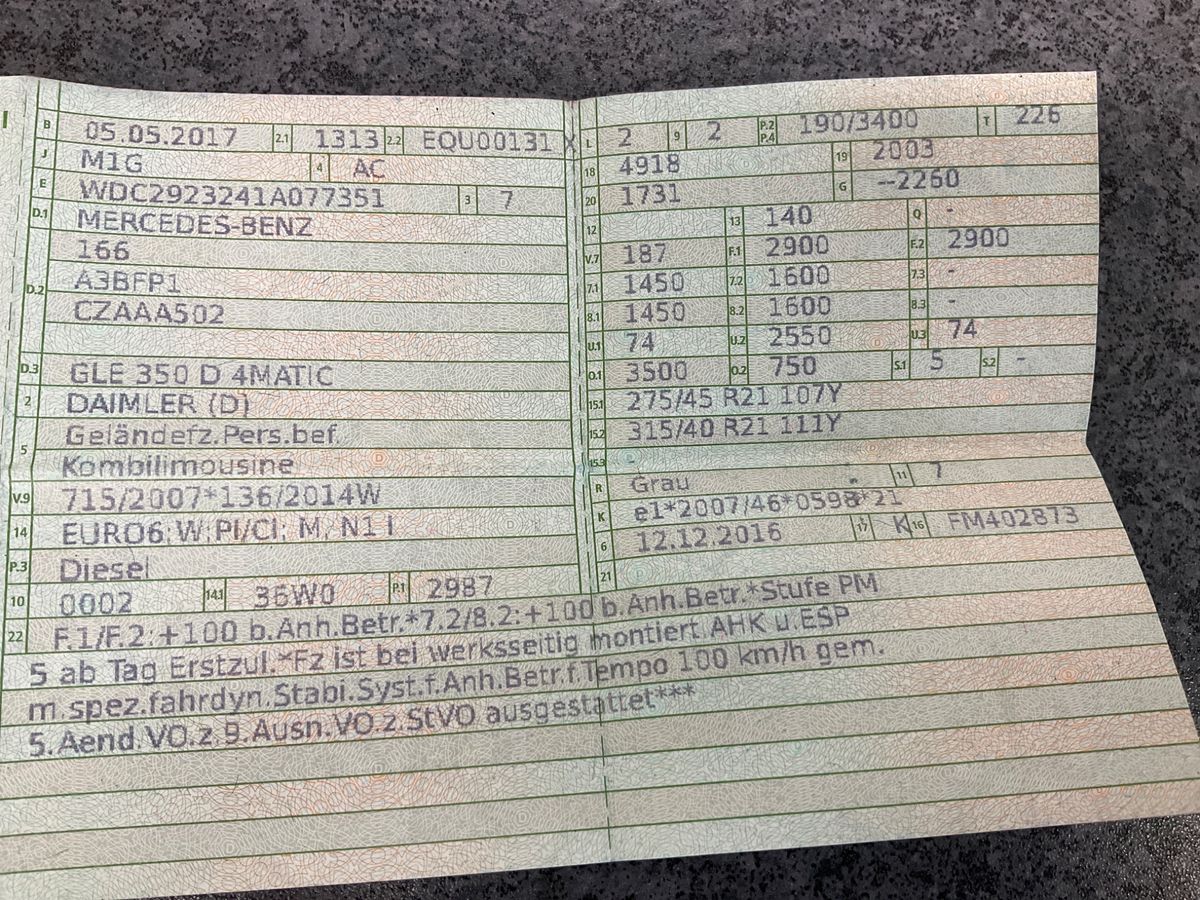 B 05.05.2017 2.1 1313 2.2 EQU00131 X
J M1G 4 AC
E WDC2923241A077351 3 7
D.1 MERCEDES-BENZ
D.2 166
A3BFP1
CZAAA502
D.3 GLE 350 D 4MATIC
2 DAIMLER (D)
5 Geländefz.Pers.bef.
Kombilimousine
V.9 715/2007*136/2014W
14 EURO6;W;PI/CI; M, N1 I
P.3 Diesel
10 0002 14.1 36W0 P.1 2987
L 2 9 2 P.2 P.4 190/3400 T 226
18 4918 19 2003
20 1731 G --2260
12 13 140 Q -
V.7 187 F.1 2900 F.2 2900
7.1 1450 7.2 1600 7.3 -
8.1 1450 8.2 1600 8.3 -
U.1 74 U.2 2550 U.3 74
O.1 3500 O.2 750 S.1 5 S.2 -
15.1 275/45 R21 107Y
15.2 315/40 R21 111Y
15.3 -
R Grau - 11 7
K e1*2007/46*0598*21
6 12.12.2016 17 K 16 FM402873
21
22 F.1/F.2:+100 b.Anh.Betr.*7.2/8.2:+100 b.Anh.Betr.*Stufe PM
5 ab Tag Erstzul.*Fz ist bei werksseitig montiert.AHK u.ESP
m.spez.fahrdyn.Stabi.Syst.f.Anh.Betr.f.Tempo 100 km/h gem.
5.Aend.VO.z.9.Ausn.VO.z.StVO ausgestattet***